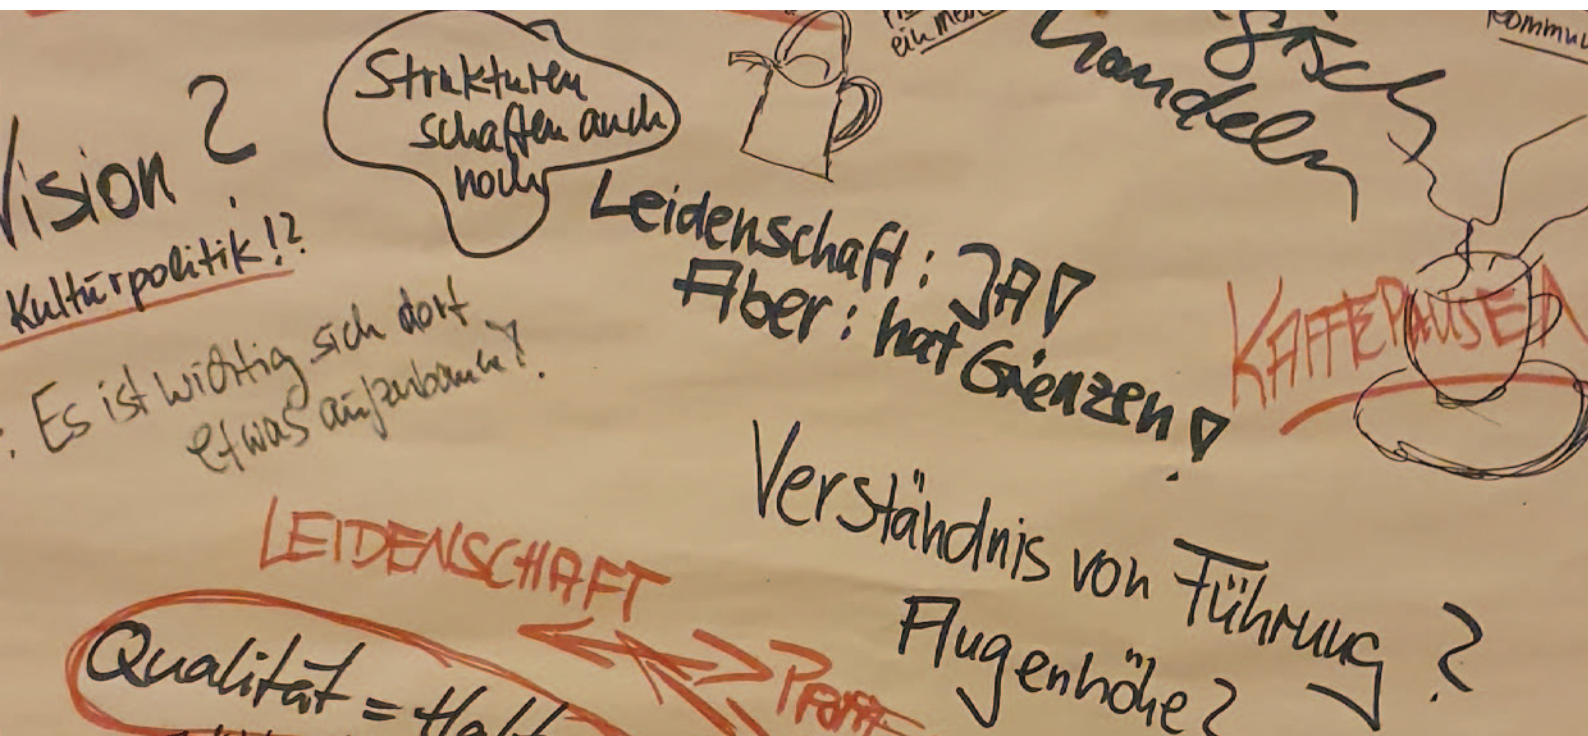 Vision?
Kulturpolitik!?
: Es ist wichtig sich dort
etwas aufzubauen!
Strukturen
schaffen auch
noch
ein
handeln
Leidenschaft: JA!
Aber: hat Grenzen!
KAFFEPAUSEN
Verständnis von Führung?
Augenhöhe?
LEIDENSCHAFT
Profit
Qualität =